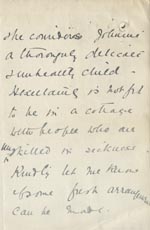 she considers Johanna
a thoroughly delicate
& unhealthy child -
& certainly is not fit
to be in a cottage
with people who are
unskilled in sickness
Kindly let me know
if some fresh arrangement
can be made.